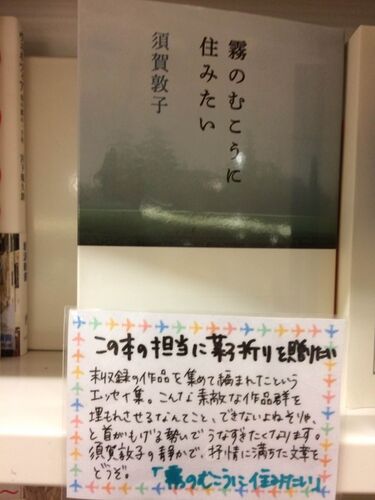 霧のむこうに
住みたい
須賀敦子
この本の担当に菓子折りを贈りたい
未収録の作品を集めて編まれたという
エッセイ集。こんな素敵な作品群を
埋もれさせるなんてこと、できないよねそりゃ、
と首がもげる勢いでうなずきたくなります。
須賀敦子の静かで、抒情に満ちた文章を
どうぞ。
「霧のむこうに住みたい」